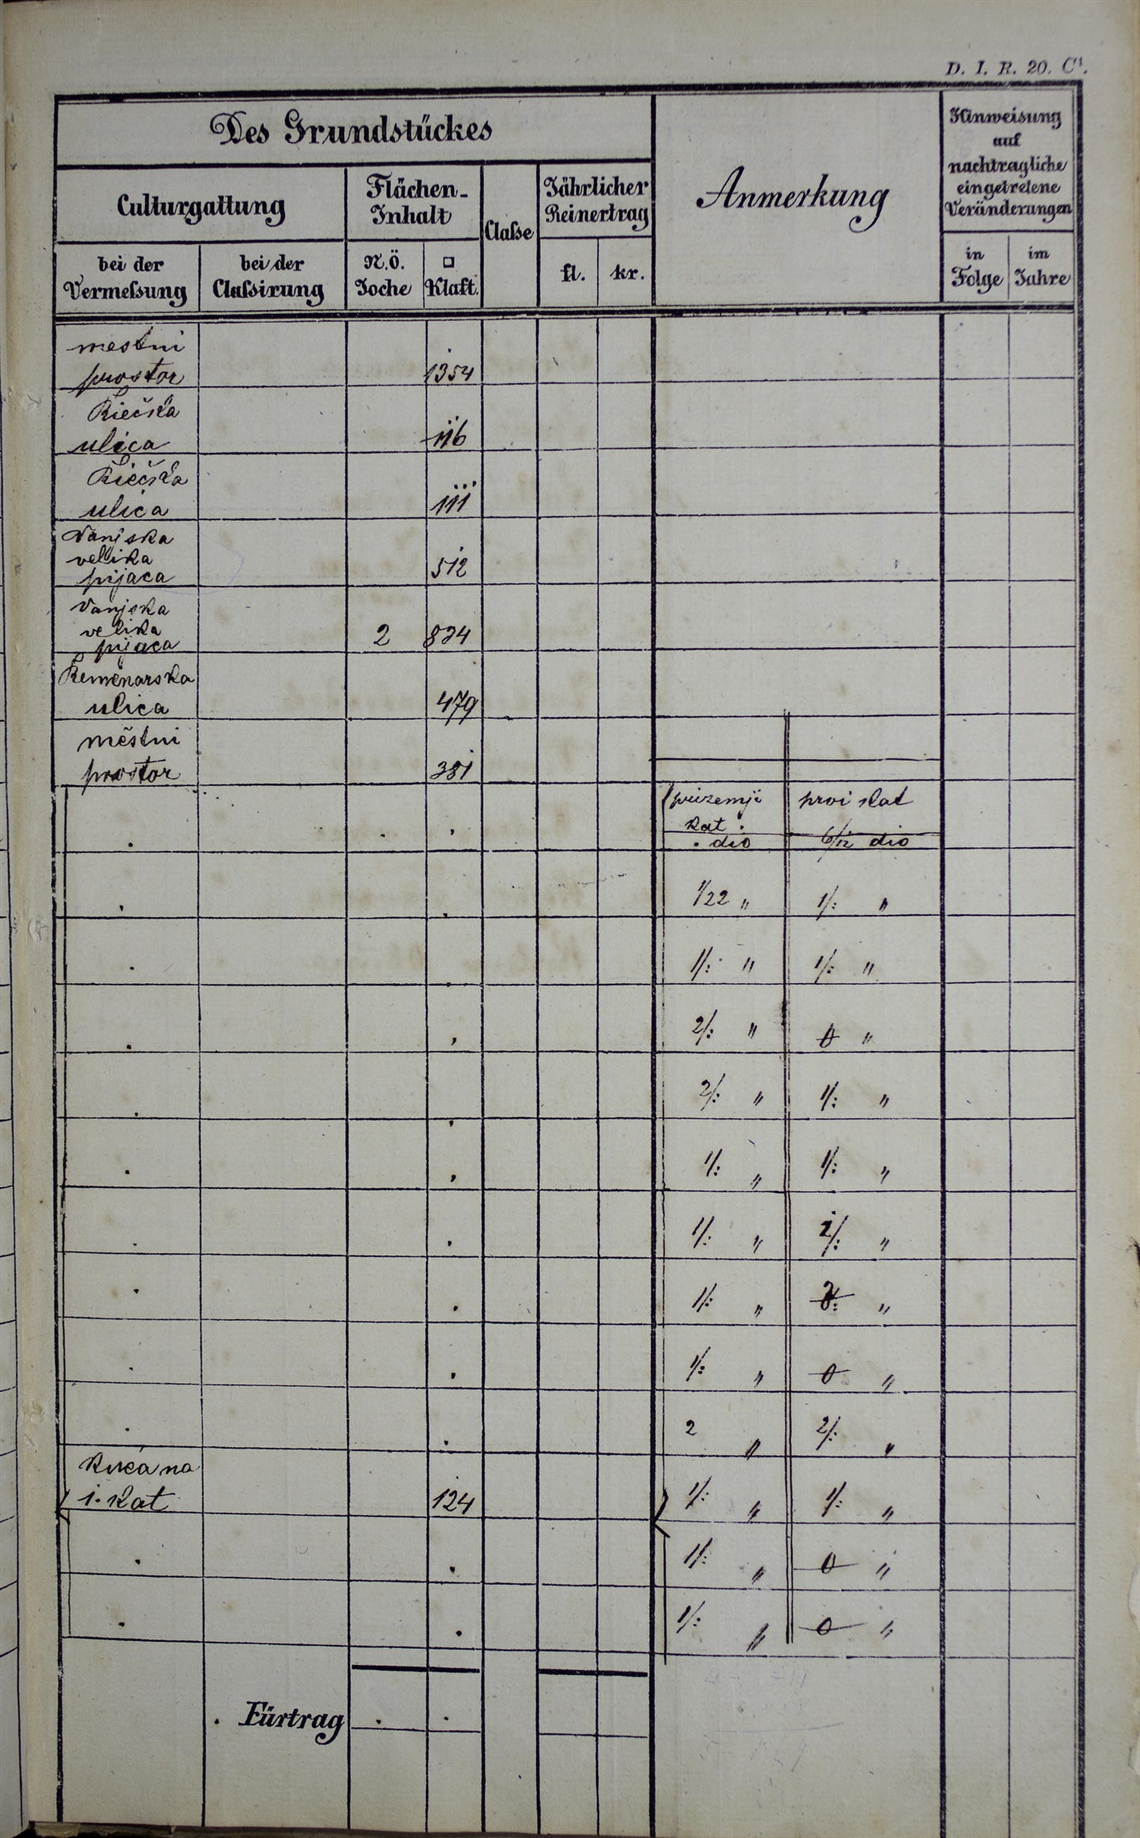 D. I. R. 20. C¹.
Des Grundstückes
Anmerkung
Hinweisung
auf
nachtragliche
eingetretene
Veränderungen
Culturgattung
Flächen-
Inhalt
Claſse
Jährlicher
Reinertrag
bei der
Vermeſsung
bei der
Claſsirung
N.Ö.
Joche
□
Klaft.
fl.
kr.
in
Folge
im
Jahre
mestni
prostor 1354
Riečka
ulica 116
Riečka
ulica 111
Vanjska
velika
pijaca 512
Vanjska
velika
pijaca 2 834
Remenarska
ulica 479
mestni
prostor 381
prizemji prvi kat
kat.
. dio 6/12 dio
1/22 " 1/: "
1/: " 1/: "
2/: " 0 "
2/: " 1/: "
1/: " 1/: "
1/: " "
1/: " "
1/: " 0 "
2 " 2/: "
kuća na
1. kat 124 1/: " 1/: "
1/: " 0 "
1/: " 0 "
Fürtrag